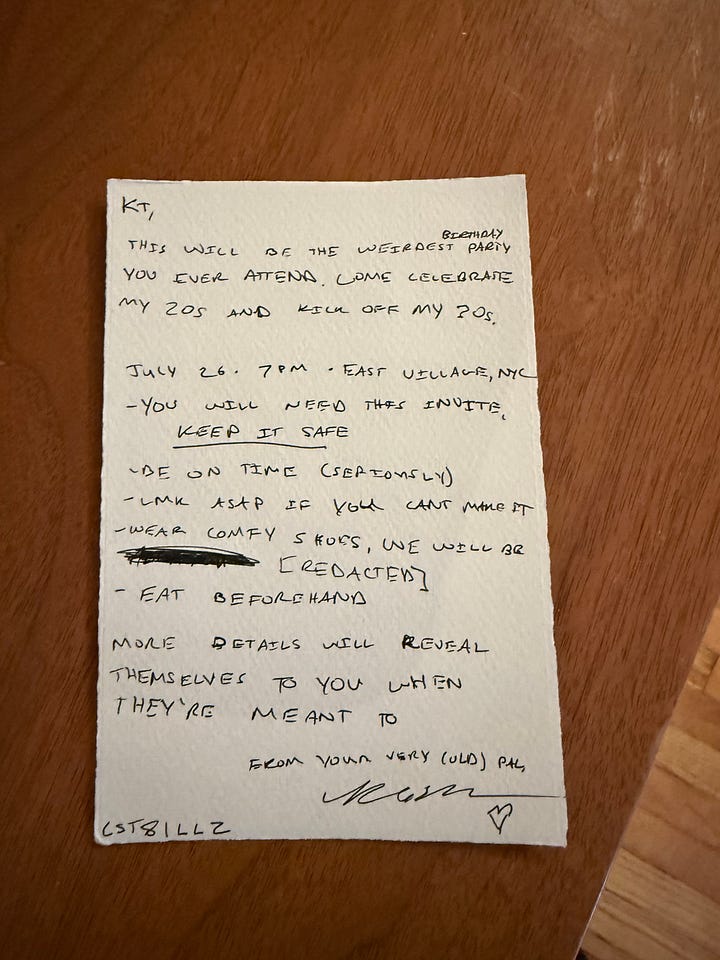 KT,
BIRTHDAY
THIS WILL BE THE WEIRDEST PARTY
YOU EVER ATTEND. COME CELEBRATE
MY 20s AND KICK OFF MY 30s.
JULY 26. 7PM · EAST VILLAGE, NYC
-YOU WILL NEED THIS INVITE,
KEEP IT SAFE
-BE ON TIME (SERIOUSLY)
-LMK ASAP IF YOU CANT MAKE IT
-WEAR COMFY SHOES, WE WILL BE
[REDACTED]
- EAT BEFOREHAND
MORE DETAILS WILL REVEAL
THEMSELVES TO YOU WHEN
THEY'RE MEANT TO
FROM YOUR VERY (OLD) PAL,